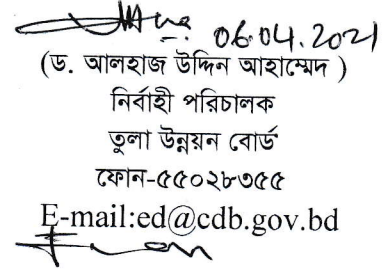 06.04.2021
(ড. আলহাজ উদ্দিন আহাম্মেদ )
নির্বাহী পরিচালক
তুলা উন্নয়ন বোর্ড
ফোন-৫৫০২৮৩৫৫
E-mail:ed@cdb.gov.bd